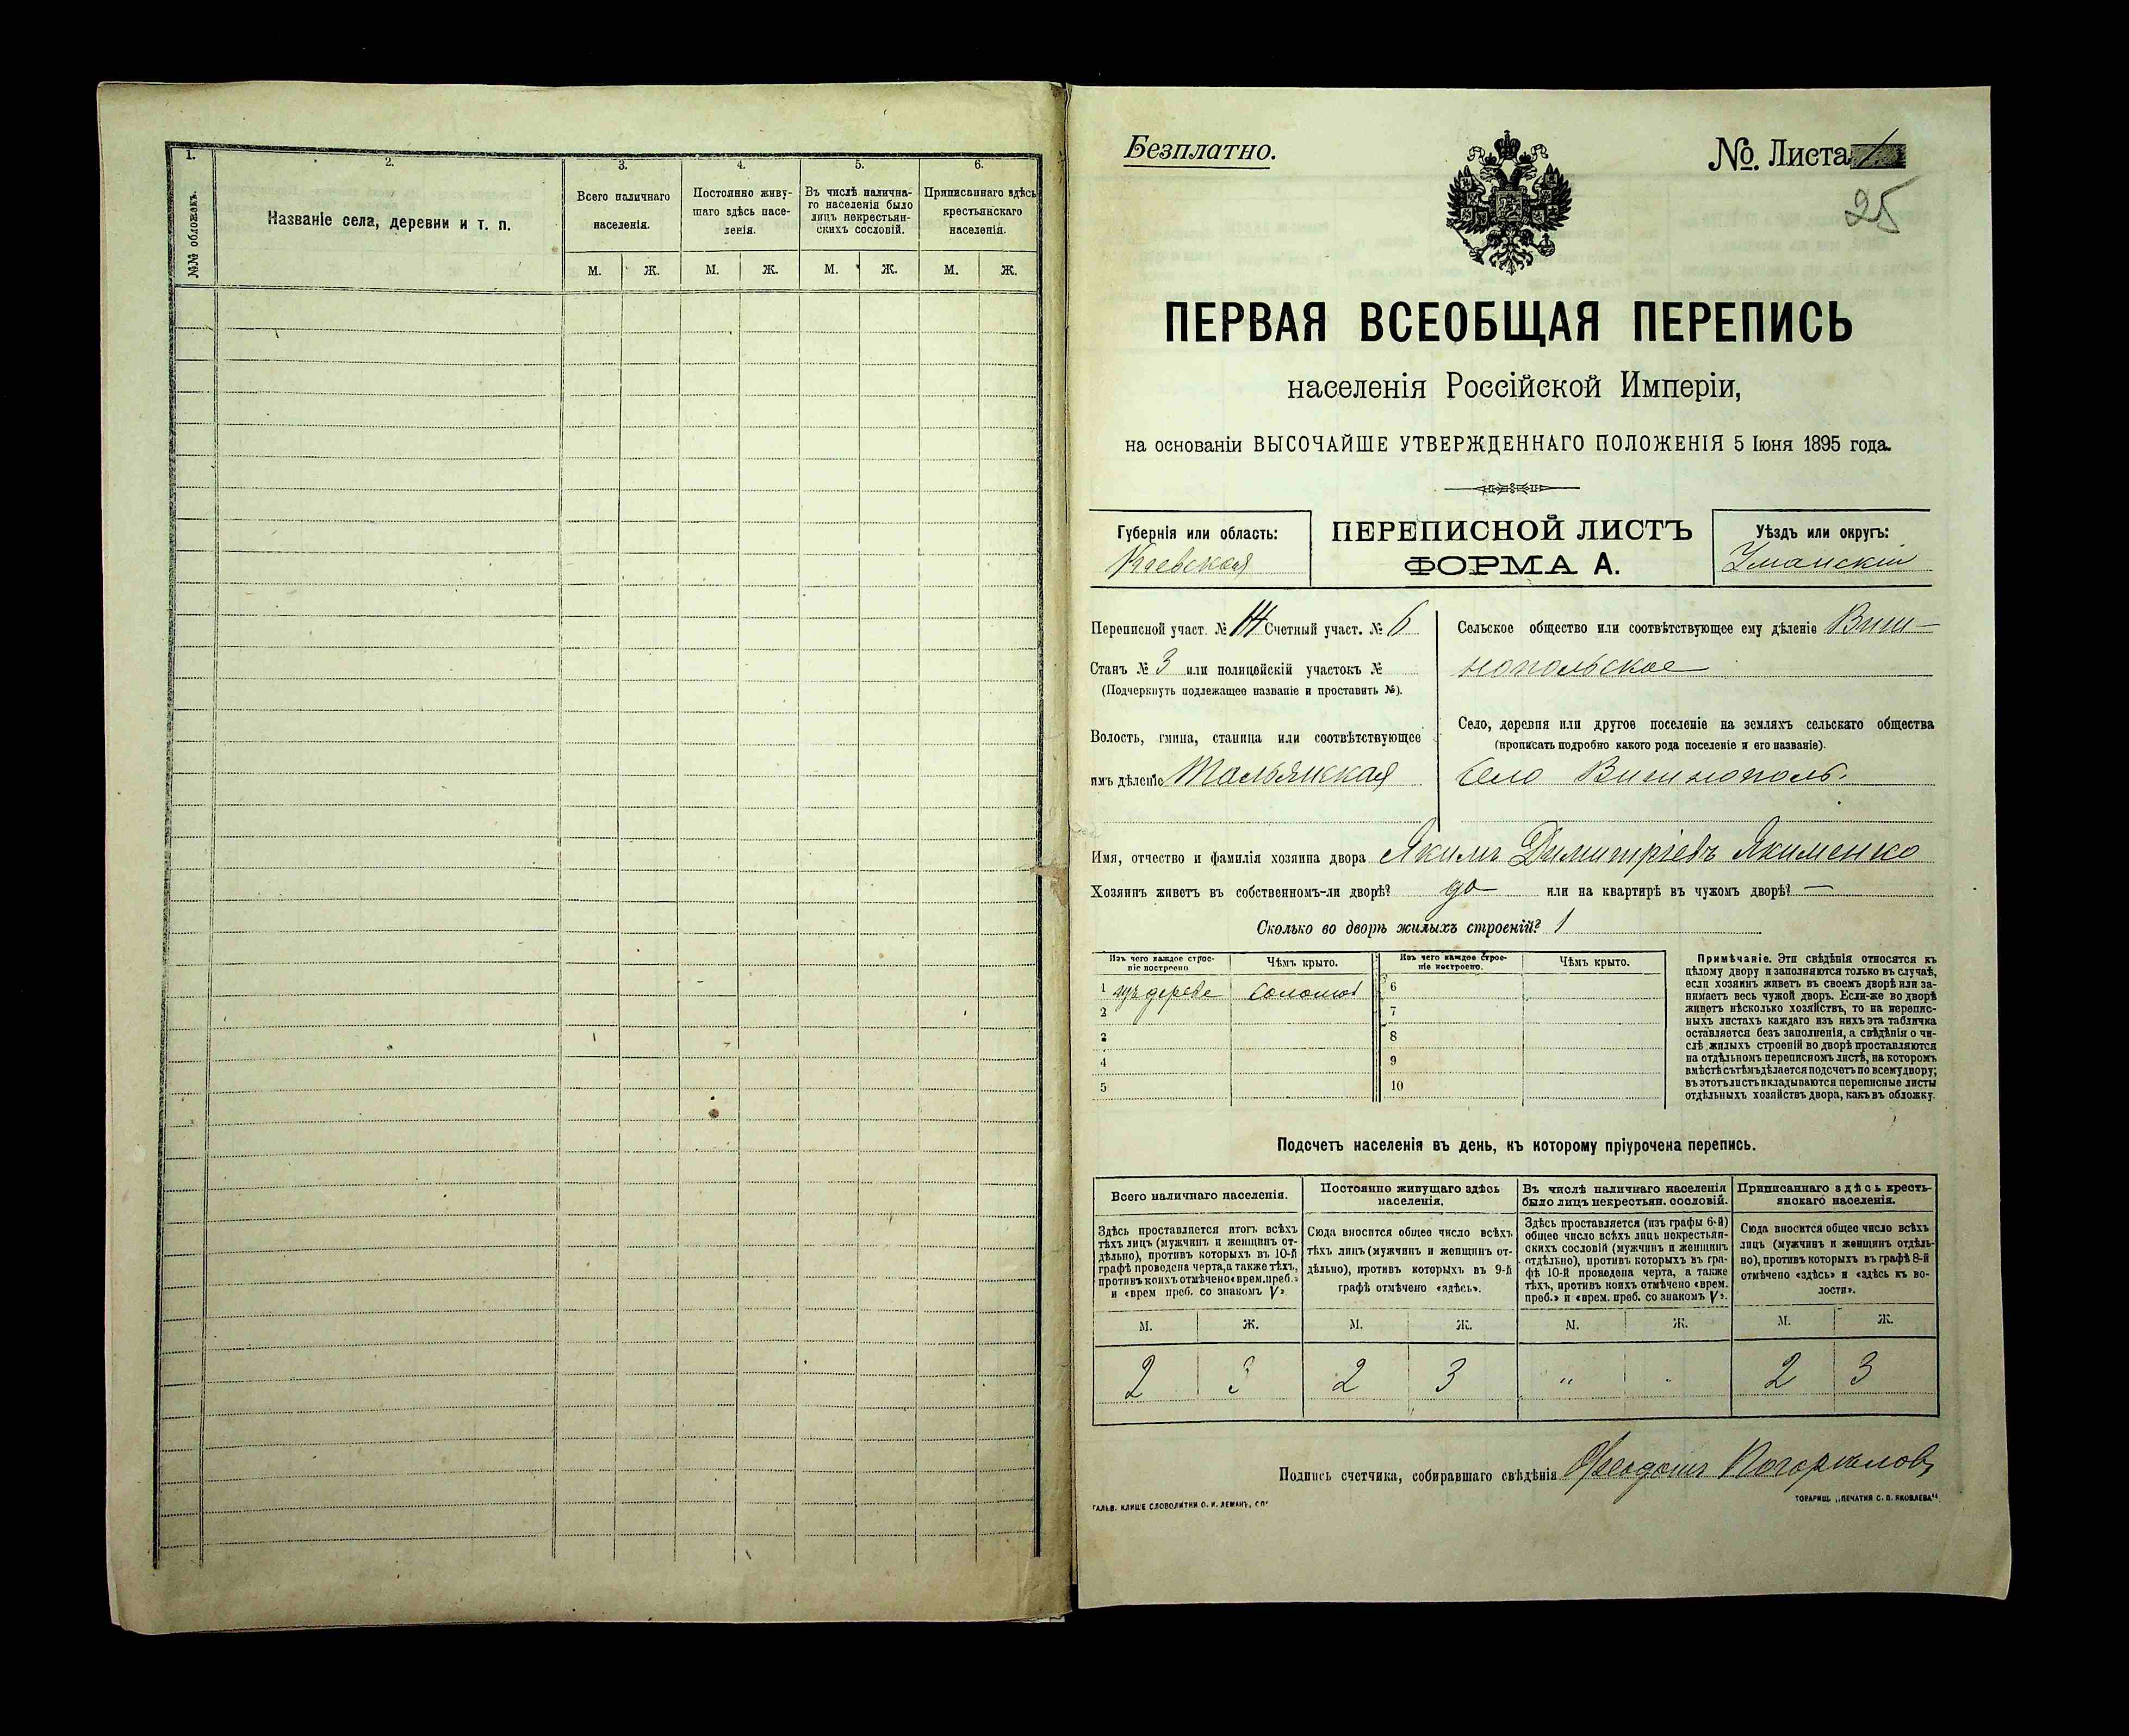 1.
2.
3.
4.
5.
6.
№№ обложекъ.
Названіе села, деревни и т. п.
Всего наличнаго
населенія.
Постоянно живу-
щаго здѣсь насе-
ленія.
Въ числѣ налична-
го населенія было
лицъ некрестьян-
скихъ сословій.
Приписаннаго здѣсь
крестьянскаго
населенія.
М. Ж. М. Ж. М. Ж. М. Ж.
Безплатно.
№. Листа 1
25
ПЕРВАЯ ВСЕОБЩАЯ ПЕРЕПИСЬ
населенія Россійской Имперіи,
на основаніи ВЫСОЧАЙШЕ УТВЕРЖДЕННАГО ПОЛОЖЕНІЯ 5 Іюня 1895 года.
Губернія или область:
Кіевская
ПЕРЕПИСНОЙ ЛИСТЪ
ФОРМА А.
Уѣздъ или округъ:
Уманскій
Переписной участ. № 14 Счетный участ. № 6
Станъ № 3 или полицейскій участокъ №
(Подчеркнуть подлежащее названіе и проставить №).
Волость, гмина, станица или соотвѣтствующее
имъ дѣленіе Тальянская
Сельское общество или соотвѣтствующее ему дѣленіе Виш-
нопольское
Село, деревня или другое поселеніе на земляхъ сельскаго общества
(прописать подробно какого рода поселеніе и его названіе).
село Вишнополь.
Имя, отчество и фамилія хозяина двора Якимъ Димитріевъ Якименко
Хозяинъ живетъ въ собственномъ-ли дворѣ? да или на квартирѣ въ чужомъ дворѣ? —
Сколько во дворѣ жилыхъ строеній? 1
Изъ чего каждое строе-
ніе построено
Чѣмъ крыто.
Изъ чего каждое строе-
ніе построено.
Чѣмъ крыто.
1 изъ дерева соломой 6
2 7
3 8
4 9
5 10
Примѣчаніе. Эти свѣдѣнія относятся къ
цѣлому двору и заполняются только въ случаѣ,
если хозяинъ живетъ въ своемъ дворѣ или за-
нимаетъ весь чужой дворъ. Если-же во дворѣ
живетъ нѣсколько хозяйствъ, то на перепис-
ныхъ листахъ каждаго изъ нихъ эта табличка
оставляется безъ заполненія, а свѣдѣнія о чи-
слѣ жилыхъ строеній во дворѣ проставляются
на отдѣльномъ переписномъ листѣ, на которомъ
вмѣстѣ съ тѣмъ дѣлается подсчетъ по всему двору;
въ этотъ листъ вкладываются переписные листы
отдѣльныхъ хозяйствъ двора, какъ въ обложку.
Подсчетъ населенія въ день, къ которому пріурочена перепись.
Всего наличнаго населенія.
Постоянно живущаго здѣсь
населенія.
Въ числѣ наличнаго населенія
было лицъ некрестьян. сословій.
Приписаннаго здѣсь кресть-
янскаго населенія.
Здѣсь проставляется итогъ всѣхъ
тѣхъ лицъ (мужчинъ и женщинъ от-
дѣльно), противъ которыхъ въ 10-й
графѣ проведена черта, а также тѣхъ,
противъ коихъ отмѣчено «врем. преб.»
и «врем преб. со знакомъ V».
Сюда вносится общее число всѣхъ
тѣхъ лицъ (мужчинъ и женщинъ от-
дѣльно), противъ которыхъ въ 9-й
графѣ отмѣчено «здѣсь».
Здѣсь проставляется (изъ графы 6-й)
общее число всѣхъ лицъ некрестьян-
скихъ сословій (мужчинъ и женщинъ
отдѣльно), противъ которыхъ въ гра-
фѣ 10-й проведена черта, а также
тѣхъ, противъ коихъ отмѣчено «врем.
преб.» и «врем. преб. со знакомъ V».
Сюда вносится общее число всѣхъ
лицъ (мужчинъ и женщинъ отдѣль-
но), противъ которыхъ въ графѣ 8-й
отмѣчено «здѣсь» и «здѣсь въ во-
лости».
М. Ж. М. Ж. М. Ж. М. Ж.
2 3 2 3 „ „ 2 3
Подпись счетчика, собиравшаго свѣдѣнія
ГАЛЬВ. КЛИШЕ СЛОВОЛИТНИ О. И. ЛЕМАНЪ, СПб
ТОВАРИЩ. „ПЕЧАТНЯ С. П. ЯКОВЛЕВА“